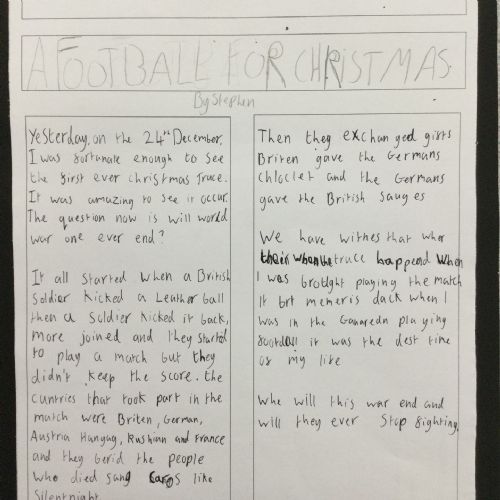 A FOOTBALL FOR CHRISTMAS
By Stephen
Yesterday, on the 24th December,
I was fortunate enough to see
the first ever christmas truce.
It was amazing to see it occur.
The question now is will world
war one ever end?
It all started when a British
soldier kicked a leather ball
then a soldier kicked it back,
more joined and they started
to play a match but they
didn't keep the score. the
cuntries that took part in the
match were Briten, German,
Austria Hangag, Rushian and France
and they berid the people
who died sang cargs like
Silent night.
Then they exchanged gists
Briten gave the Germans
chloclet and the Germans
gave the British sauges
We have withes that wher
their when the truce happend when
I was brotlght playing the match
it brt memeris dack when I
was in the Ganaredn playing
football it was the dest time
of my life
Whe will this war end and
will they ever stop fighting.